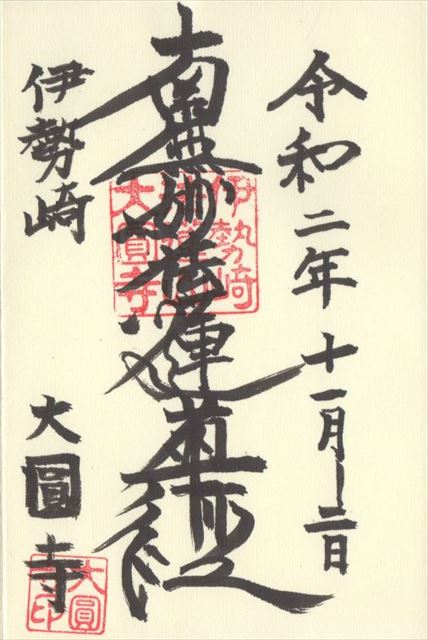 令和二年十一月十二日
南無妙法蓮華経
伊勢崎
大圓寺
伊勢崎
大圓寺
大圓
寺印